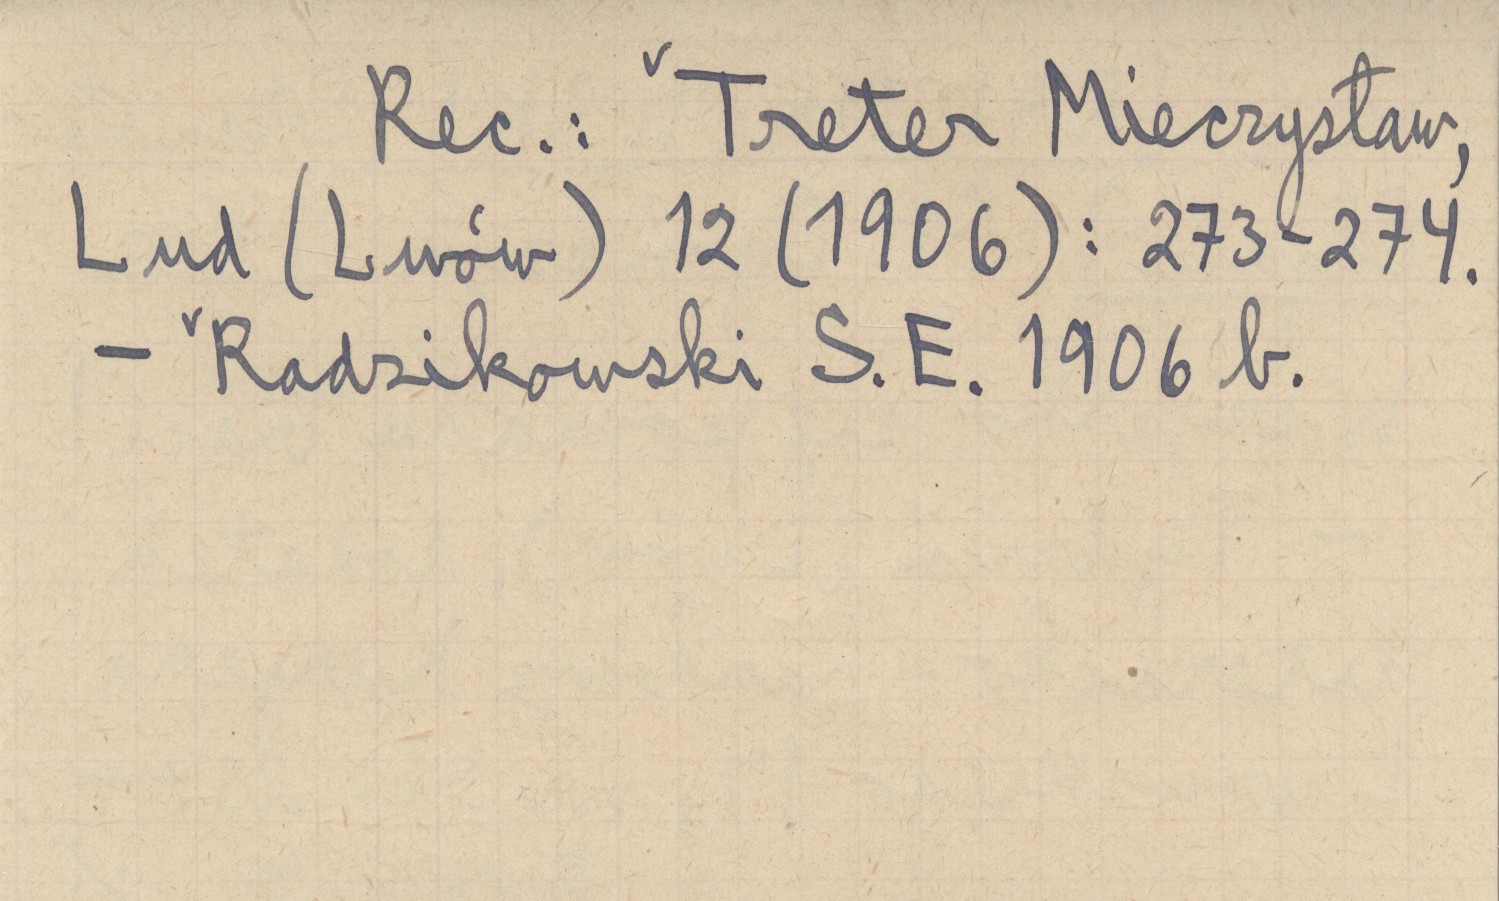 Rec.: ˅Treter Mieczysław,
Lud (Lwów) 12 (1906): 273-274.
- ˅Radzikowski S.E. 1906 b.